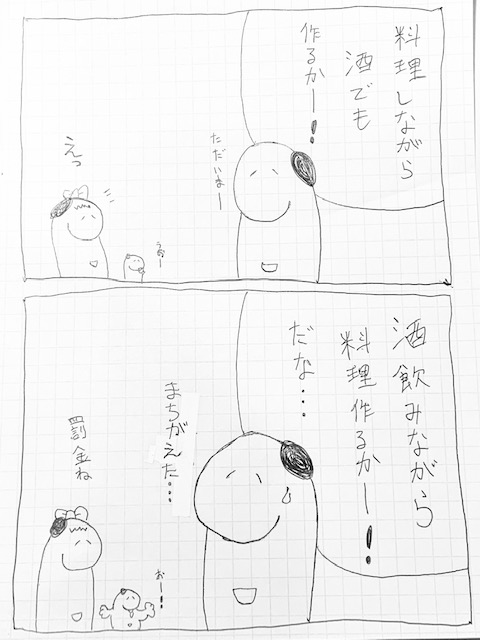 料理しながら
酒でも
作るかー!
ただいまー
えっ
うおー
酒飲みながら
料理作るかー!
だな…
まちがえた…
罰金ね
おー!